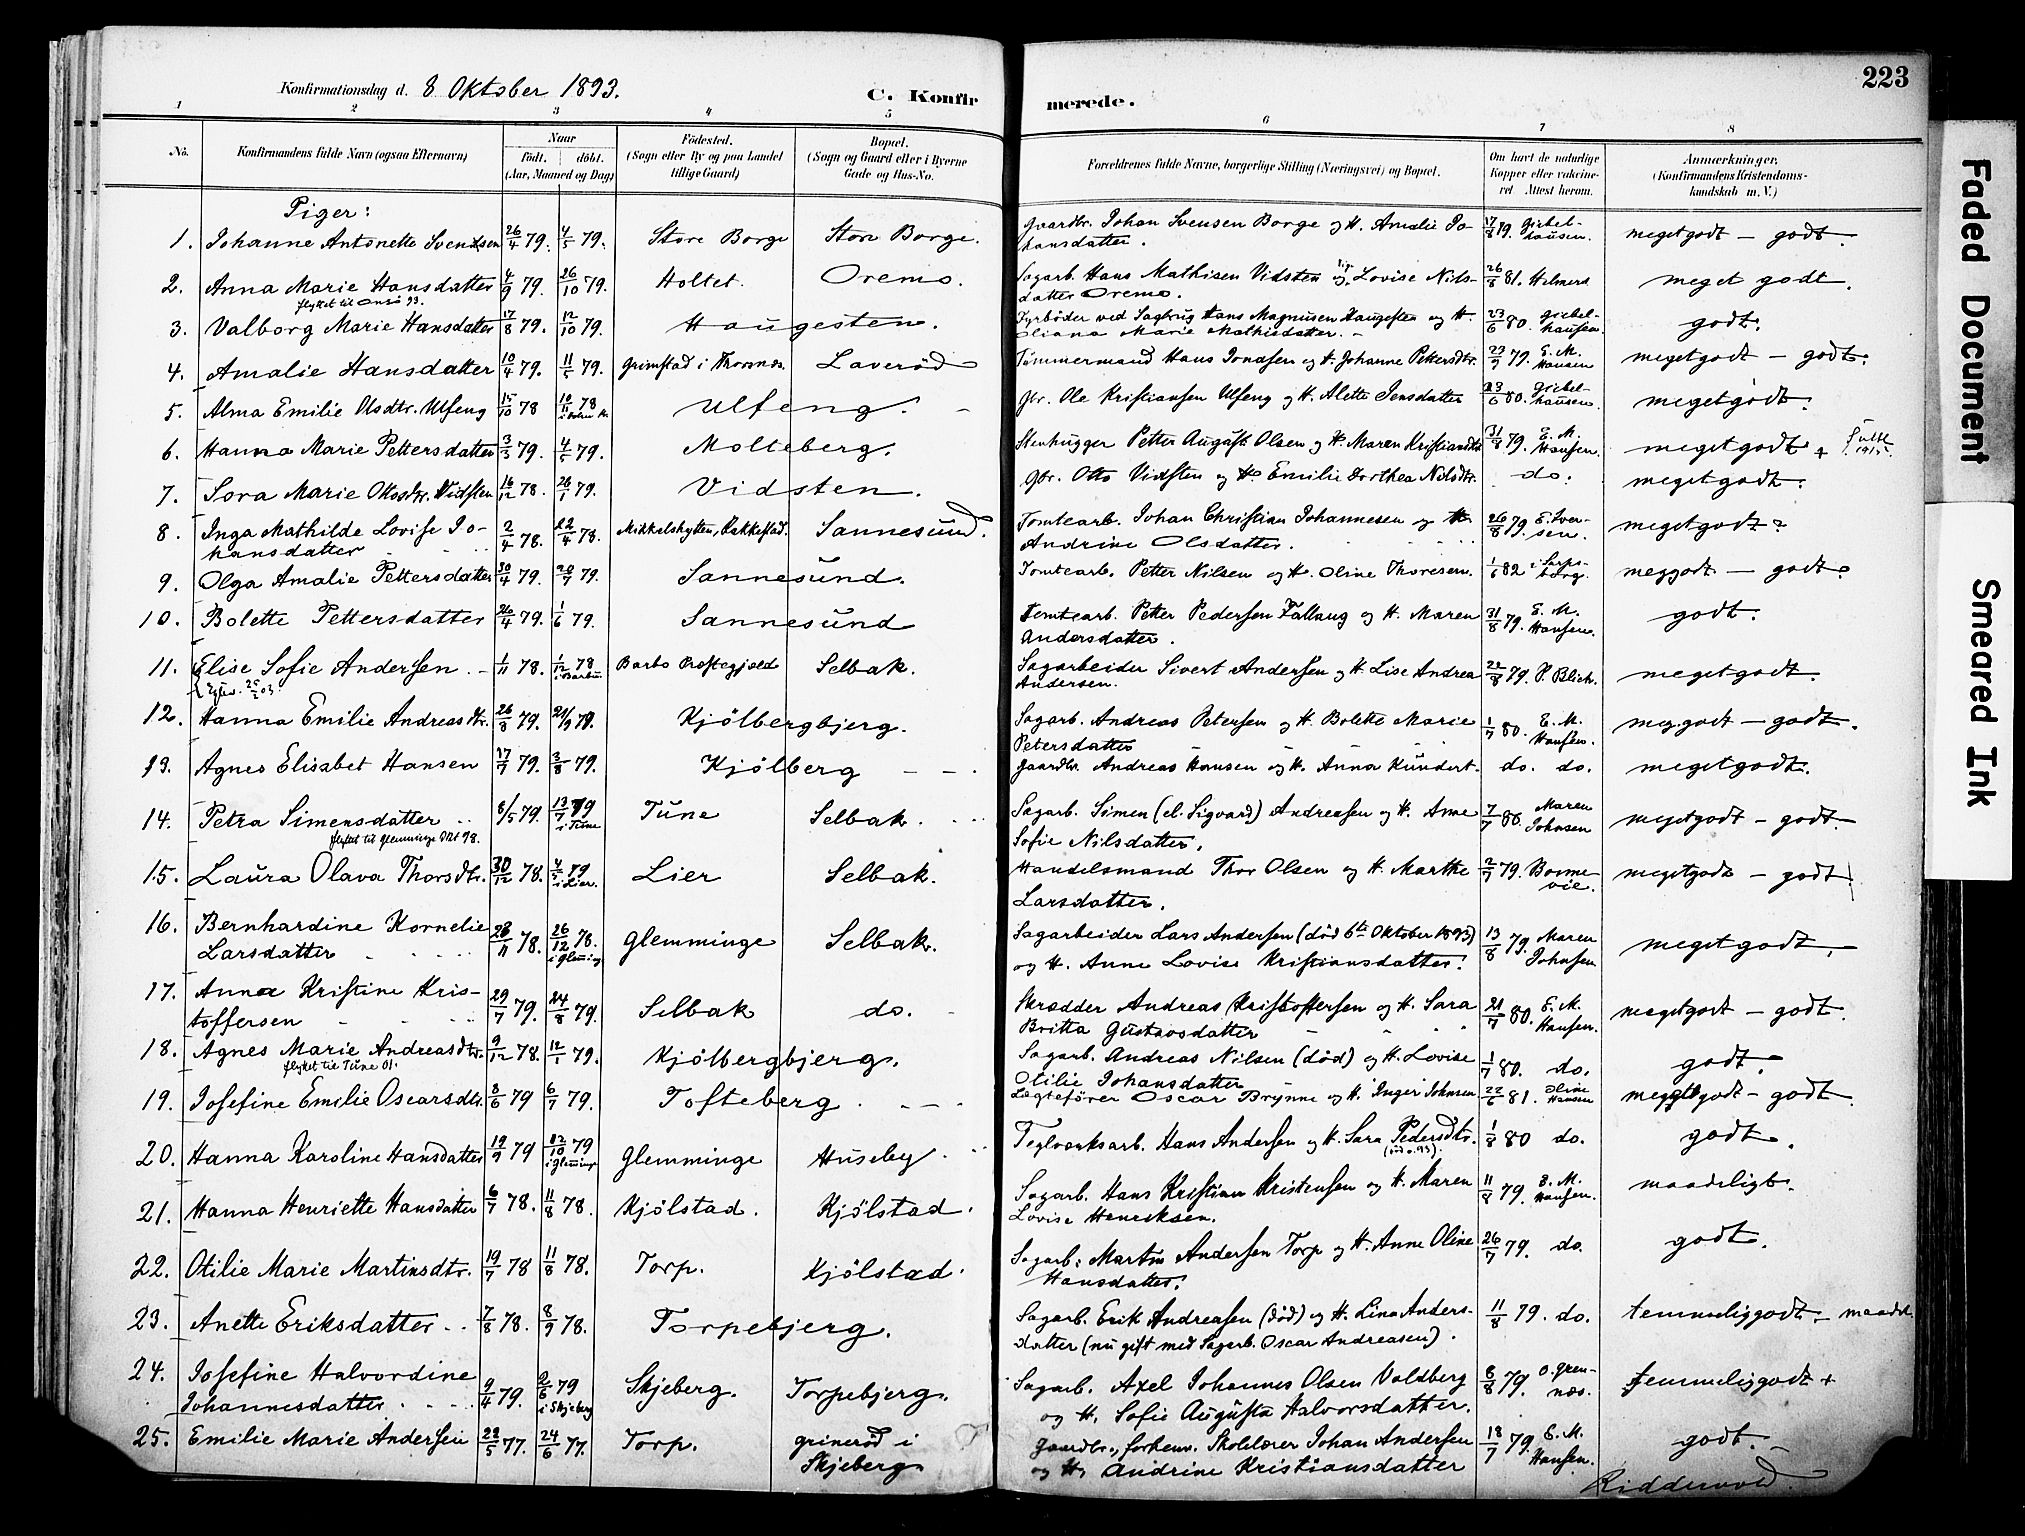 Konfirmationsdag d. 8 Oktober 1893.
C. Konfir merede.
223
1 2 3 4 5 6 7 8
No.
Konfirmandens fulde Navn (ogsaa Efternavn)
Naar
födt. döbt.
(Aar, Maaned og Dag)
Födested.
(Sogn eller By og paa Landet
tillige Gaard)
Bopæl.
(Sogn og Gaard eller i Byerne
Gade og Hus-No.
Forældrenes fulde Navne, borgerlige Stilling (Næringsvei) og Bopæl.
Om havt de naturlige
Kopper eller vakcine-
ret. Attest herom.
Anmærkninger.
(Konfirmandens Kristendoms-
kundskab m. V.)
Piger:
1. Johanne Antonette Svendsen 26/4 79. 4/5 79. Store Borge Store Borge. Gaardbr. Johan Svensen Borge og H. Amalie Jo- 17/8 79. Giebel- megetgodt – godt.
hansdatter. hausen.
2. Anna Marie Hansdatter 4/9 79. 26/10 79. Holtet. Oremo. Sagarb. Hans Mathisen Vidsten og Lovise Nils- 26/8 81. Helmers meget godt.
flyttet til Onsö 93. datter Oremo.
3. Valborg Marie Hansdatter 17/8 79. 12/10 79. Haugesten. Fyrböder ved Sagbrug Hans Magnusen Haugesten og H. 23/6 80. Giebel- godt.
Oliana Marie Mathisdatter. hausen.
4. Amalie Hansdatter 10/4 79. 11/5 79. Grimstad i Thorsnæs. Laveröd Tömmermand Hans Jonasen og H. Johanne Pettersdtr. 29/9 79. E. M. Hansen megetgodt – godt.
5. Alma Emilie Olsdtr. Ulfeng 15/10 78 10/11 78 Ulfeng. Gbr. Ole Kristiansen Ulfeng og H. Alette Jensdatter 23/6 80. Giebel- megetgodt.
hausen.
6. Hanna Marie Pettersdatter 3/3 79. 4/5 79. Molteberg. Stenhugger Petter August Olsen og H. Maren Kristiansdtr. 31/8 79. E. M. Hansen. megetgodt + 1915.
7. Sora Marie Ottosdtr. Vidsten 16/12 78. 26/1 79. Vidsten. Gbr. Otto Vidsten og H. Emilie Dorthea Nilsdtr. do. megetgodt.
8. Inga Mathilde Lovise Jo- 2/4 78. 22/4 78. Mikkelshytten, Rakkestad. Sannesund. Tomtearb. Johan Christian Johannesen og H. 26/8 79. E. Iver- megetgodt.
hansdatter Andrine Olsdatter. sen.
9. Olga Amalie Pettersdatter 30/4 79. 20/7 79. Sannesund. Tomtearb. Petter Nilsen og H. Oline Thoresen. 1/6 82 i Sarps- meggodt – godt.
borg.
10. Bolette Pettersdatter 26/4 79. 1/6 79. Sannesund Tomtearb. Petter Pedersen Fallaug og H. Maren 31/8 79. E. M. godt.
Andersdatter. Hansen.
11. Elise Sofie Andersen. 1/11 78. 1/12 78 i Barbu. Barbo Præstegjæld Selbak. Sagarbeider Sivert Andersen og H. Lise Andrea 22/8 79. P. Blich. megetgodt.
25/2 03. Andersen.
12. Hanna Emilie Andreasdtr. 26/8 79. 21/9 79. Kjölbergbjerg. Sagarb. Andreas Petersen og H. Bolette Marie 1/7 80. E. M. meg.godt – godt.
Petersdatter Hansen.
13. Agnes Elisabet Hansen 17/7 79. 3/8 79. Kjölberg Gaardbr. Andreas Hansen og H. Anna Kundert. do. do. megetgodt.
14. Petra Simensdatter 8/5 79. 13/7 79 i Tune Tune Selbak. Sagarb. Simen (el. Sigvard) Andreasen og H. Ane 7/7 80. Maren megetgodt – godt.
flyttet til Glemminge Okt 98. Sofie Nilsdatter. Johnsen
15. Laura Olava Thorsdtr. 30/12 78. 4/5 79 i Lier. Lier Selbak. Handelsmand Thor Olsen og H. Marthe 2/7 79. Bonne- megetgodt – godt
Larsdatter. vie.
16. Bernhardine Kornelie 28/11 78. 26/12 78. Glemminge Selbak. Sagarbeider Lars Andersen (död 6te Oktober 1893) 13/8 79. Maren megetgodt.
Larsdatter og H. Anne Lovise Kristiansdatter. Johnsen
17. Anna Kristine Kris- 29/7 79. 24/8 79. Selbak do. Skrædder Andreas Kristoffersen og H. Sara 21/7 80. E. M. megetgodt – godt.
toffersen Britta Gustavsdatter Hansen.
18. Agnes Marie Andreasdtr. 9/12 78. 12/1 79. Kjölbergbjerg. Sagarb. Andreas Nilsen (död) og H. Lovise 1/7 80. do. godt.
flyttet til Tune 01. Otilie Johansdatter
19. Josefine Emilie Oscarsdtr. 8/6 79 6/7 79. Tofteberg. Lægtefører Oscar Brynne og H. Inger Johnsen 22/6 81. Oline Hansen megetgodt – godt.
20. Hanna Karoline Hansdatter 19/9 79 12/10 79 Glemminge Huseby. Teglværksarb. Hans Andersen og H. Sara Pedersdtr. 1/8 80 do. godt.
21. Hanna Henriette Hansdatter 6/7 78. 11/8 78. Kjölstad. Kjölstad. Sagarb. Hans Kristian Kristensen og H. Maren 11/8 79. E. M. Hansen. maadeligt.
Lovise Henriksen.
22. Otilie Marie Martinsdtr. 19/7 78 11/8 78. Torp. Kjölstad. Sagarb. Martin Andersen Torp og H. Anne Oline 26/7 79. do. godt.
Hansdatter.
23. Anette Eriksdatter 7/8 78. 8/9 78. Torpebjerg. Sagarb. Erik Andreasen (död) og H. Lina Anders- 11/8 79. do. temmeliggodt. – maadel.
datter (nu gift med Sagarb. Oscar Andreasen).
24. Josefine Halvordine 9/4 79. 2/6 79 i Skjeberg Skjeberg. Torpebjerg. Sagarb. Axel Johannes Olsen Valdberg 8/8 79. O. Gren- temmeliggodt +
Johannesdatter og H. Sofie Augusta Halvorsdatter. næs.
25. Emilie Marie Andersen 22/5 77. 24/6 77. Torp. Grineröd i Gaardbr., forhenv. Skolelærer Johan Andersen 18/7 79. E. M. godt.
Skjeberg og H. Andrine Kristiansdatter Hansen.
Riddervold.
Faded Document
Smeared Ink